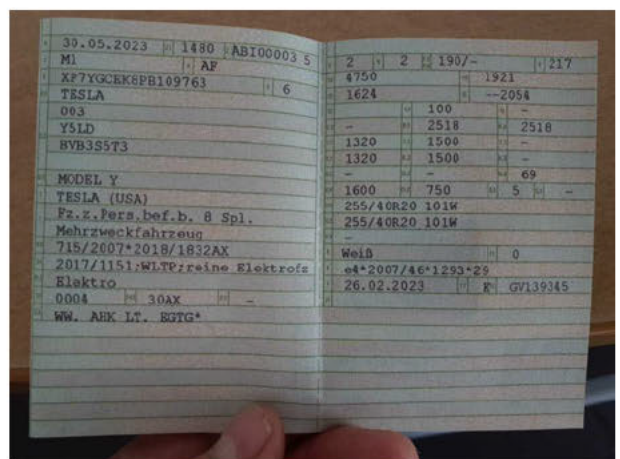 30.05.2023 1480 ABI00003 5
M1 AF
XP7YGCEK8PB109763 6
TESLA
003
Y5LD
BVB3S5T3
MODEL Y
TESLA (USA)
Fz.z.Pers.bef.b. 8 Spl.
Mehrzweckfahrzeug
715/2007*2018/1832AX
2017/1151;WLTP;reine Elektrofz
Elektro
0004 30AX -
WW. AHK LT. EGTG*
2 2 190/- 217
4750 1921
1624 --2054
100 -
- 2518 2518
1320 1500 -
1320 1500 -
- - 69
1600 750 5 -
255/40R20 101W
255/40R20 101W
-
Weiß 0
e4*2007/46*1293*29
26.02.2023 K GV139345